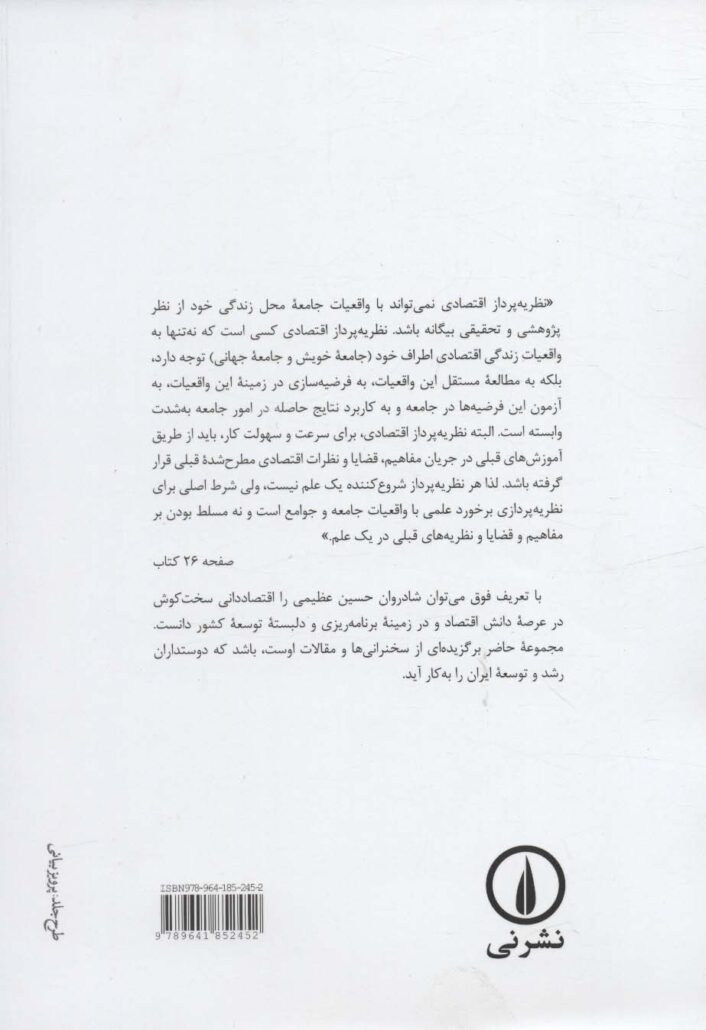 «نظریه‌پرداز اقتصادی نمی‌تواند با واقعیات جامعهٔ محل زندگی خود از نظر
پژوهشی و تحقیقی بیگانه باشد. نظریه‌پرداز اقتصادی کسی است که نه‌تنها به
واقعیات زندگی اقتصادی اطراف خود (جامعهٔ خویش و جامعهٔ جهانی) توجه دارد،
بلکه به مطالعهٔ مستقل این واقعیات، به فرضیه‌سازی در زمینهٔ این واقعیات، به
آزمون این فرضیه‌ها در جامعه و به کاربرد نتایج حاصله در امور جامعه به‌شدت
وابسته است. البته نظریه‌پرداز اقتصادی، برای سرعت و سهولت کار، باید از طریق
آموزش‌های قبلی در جریان مفاهیم، قضایا و نظرات اقتصادی مطرح‌شدهٔ قبلی قرار
گرفته باشد. لذا هر نظریه‌پرداز شروع‌کننده یک علم نیست، ولی شرط اصلی برای
نظریه‌پردازی برخورد علمی با واقعیات جامعه و جوامع است و نه مسلط بودن بر
مفاهیم و قضایا و نظریه‌های قبلی در یک علم.»
صفحه ۲۶ کتاب
با تعریف فوق می‌توان شادروان حسین عظیمی را اقتصاددانی سخت‌کوش
در عرصهٔ دانش اقتصاد و در زمینهٔ برنامه‌ریزی و دلبستهٔ توسعهٔ کشور دانست.
مجموعهٔ حاضر برگزیده‌ای از سخنرانی‌ها و مقالات اوست، باشد که دوستداران
رشد و توسعهٔ ایران را به‌کار آید.
طرح جلد: پرویز بیانی
ISBN978-964-185-245-2
9 789641 852452
نشر نی